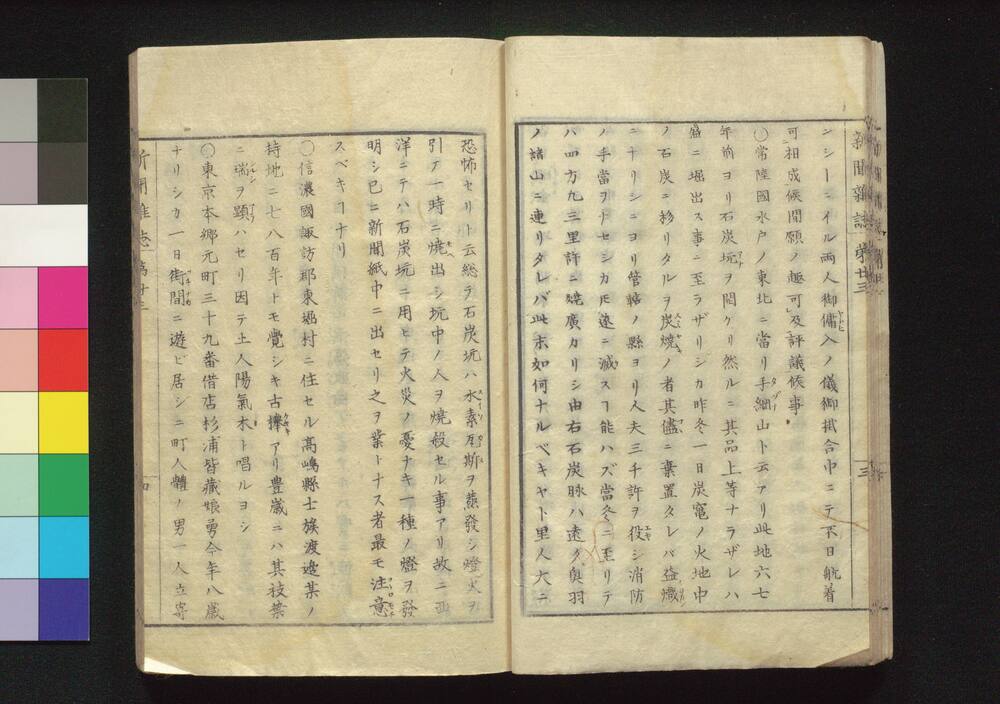 新聞雜誌 第廿三
ンシーニイル両人御傭入ノ儀御掛合中ニテ不日航着
可相成候間願ノ趣可及評議候事
〇常陸國水戸ノ東北ニ當リ手細山ト云アリ此地六七
年前ヨリ石炭坑ヲ開ケリ然ルニ其品上等ナラザレハ
盛ニ堀出ス事ニ至ラザリシカ昨冬一日炭竃ノ火地中
ノ石炭ニ移リタルヲ炭焼ノ者其儘ニ棄置タレバ益熾
ニナリシニヨリ管轄ノ縣ヨリ人夫三千許ヲ役シ消防
ノ手當ヲトセシカ𪜈遂ニ滅スヿ能ハズ當冬ニ至リテ
ハ四方九三里許ニ焼廣カリシ由右石炭脉ハ遠ク奥羽
ノ諸山ニ連リタレバ此末如何ナルベキヤト里人大ニ
三
恐怖セリト云総テ石炭坑ハ水素瓦斯ヲ蒸發シ燈火ヲ
引テ一時ニ焼出シ坑中ノ人ヲ焼殺セル事アリ故ニ西
洋ニテハ石炭坑ニ用ヒテ火災ノ憂ナキ一種ノ燈ヲ發
明シ已ニ新聞紙中ニ出セリ之ヲ業トナス者最モ注意
スベキヿナリ
〇信濃國諏訪郡東堀村ニ住セル高嶋縣士族渡邉某ノ
持地ニ七八百年トモ覺シキ古欅アリ豊歳ニハ其枝葉
ニ瑞ヲ顕ハセリ因テ土人陽氣木ト唱ルヨシ
〇東京本郷元町三十九番借店杉浦皆藏娘勇今年八歳
ナリシカ一日街間ニ遊ビ居シニ町人軆ノ男一人立寄